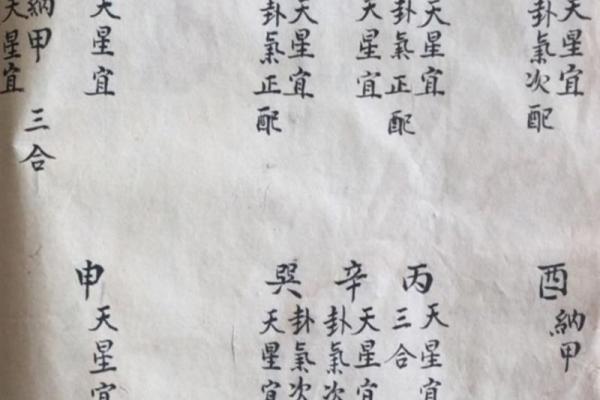 天星宜
卦氣次配
天星宜
卦氣正配
天星宜
天星宜
卦氣正配
天星宜
納甲 三合
天星宜
酉
納甲
丙
天星宜
三合
辛
天星宜
卦氣次
巽
卦氣次
天星宜
申
天星宜